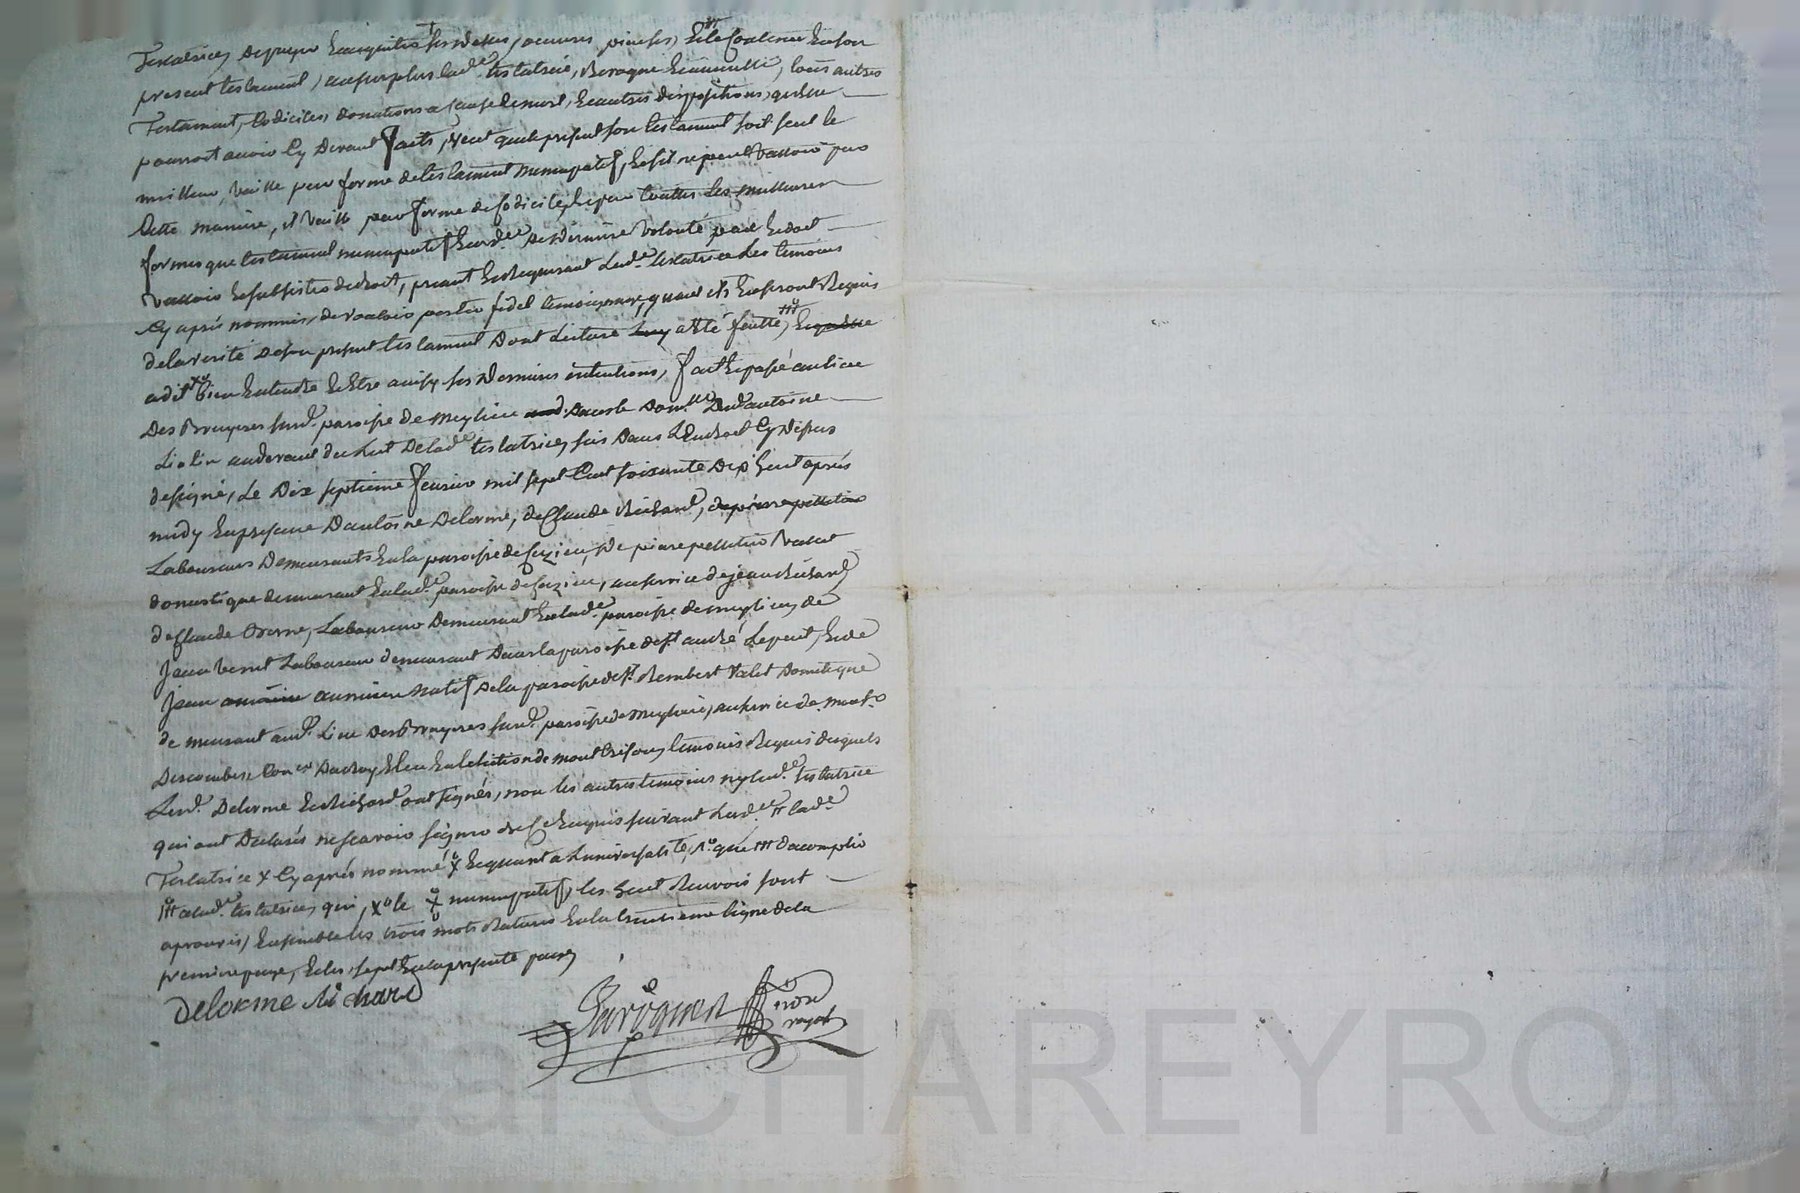 Testatrice, de payer et acquitter ses dettes, oeuvres pieuses, et le contenu en son
present testament, au surplus lad.e testatrice, revoque et annulle, tous autres
Testament, codiciles, donations a cause de mort, et autres dispositions, quelle
pourroit avoir cy devant faits, veut que le present son testament soit seul le
meilleur, vaille par forme de testament nuncupatif, et s'il ne peut valloir par
cette maniere, il vaille par forme de codicile, et par touttes les meilleures
formes que testament nuncupatif et ord.ce de derniere volonté peut et doit
valloir et subsister de droit, priant et requerant lad.e testatrice les temoins
cy après nommés, de vouloir porter fidel temoignage, quand ils en seront requis
de la verité de son present testament dont lecture luy a eté faitte, et quelle
a dit bien entendre et etre ainsy ses dernieres intentions, fait et passé au lieu
des Bruyeres susd. paroisse de meylieu dans le dom.lle dud. antoine
au devant du lit de lad.e testatrice, sis dans l'endroit cy dessus
designé, le dix septieme fevrier mil sept cent soixante dix huit après
midy en presence d'antoine Delorme, de Claude Richard, de pierre pellitier
Laboureurs demeurants en la paroisse de cuzieu, de pierre pellitier valet
domestique demeurant en lad.e paroisse de cuzieu, au service de jean Richard
de Claude Berne, Laboureur demeurant en lad.e paroisse de meylieu, de
Jean Vernet Laboureur demeurant dans la paroisse de s.t andré le puit, et de
Jean aumiere natif de la paroisse de s.t Rembert valet domestique
demeurant aud. Lieu des Bruyeres susd. paroisse de meylieu, au service de
Descombes, Con.er du Roy, Elu en l'election de montbrison, temoins requis desquels
Lesd. Delorme et Richard ont signés, non les autres temoins ny lad.e testatrice
qui ont declarés ne scavoir signer de ce enquis suivant l'ord.ce # lad.e
Testatrice x cy après nommé x et quant a l'universalité, n.o que ### d'accomplir
# a lad.e testatrice, qui, xo le x nuncupatif, les huit renvois sont
aprouvés, ensemble les trois mots raturés en la troisieme ligne de la
premiere page, et les sept en la presente page
Delorme Richard
not.re
royal
Pascal CHAREYRON